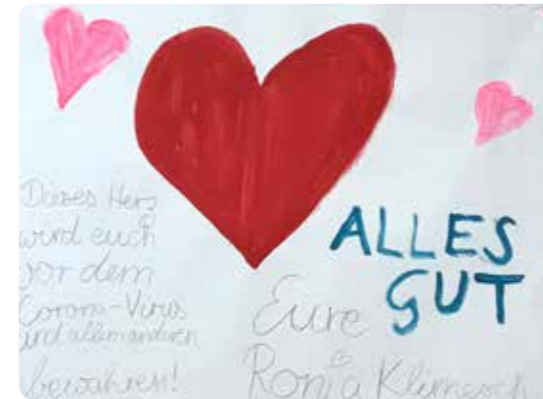 Dieses Herz
wird euch
vor dem
Corona-Virus
und allem anderen
bewahren!
ALLES
GUT
Eure
Ronja